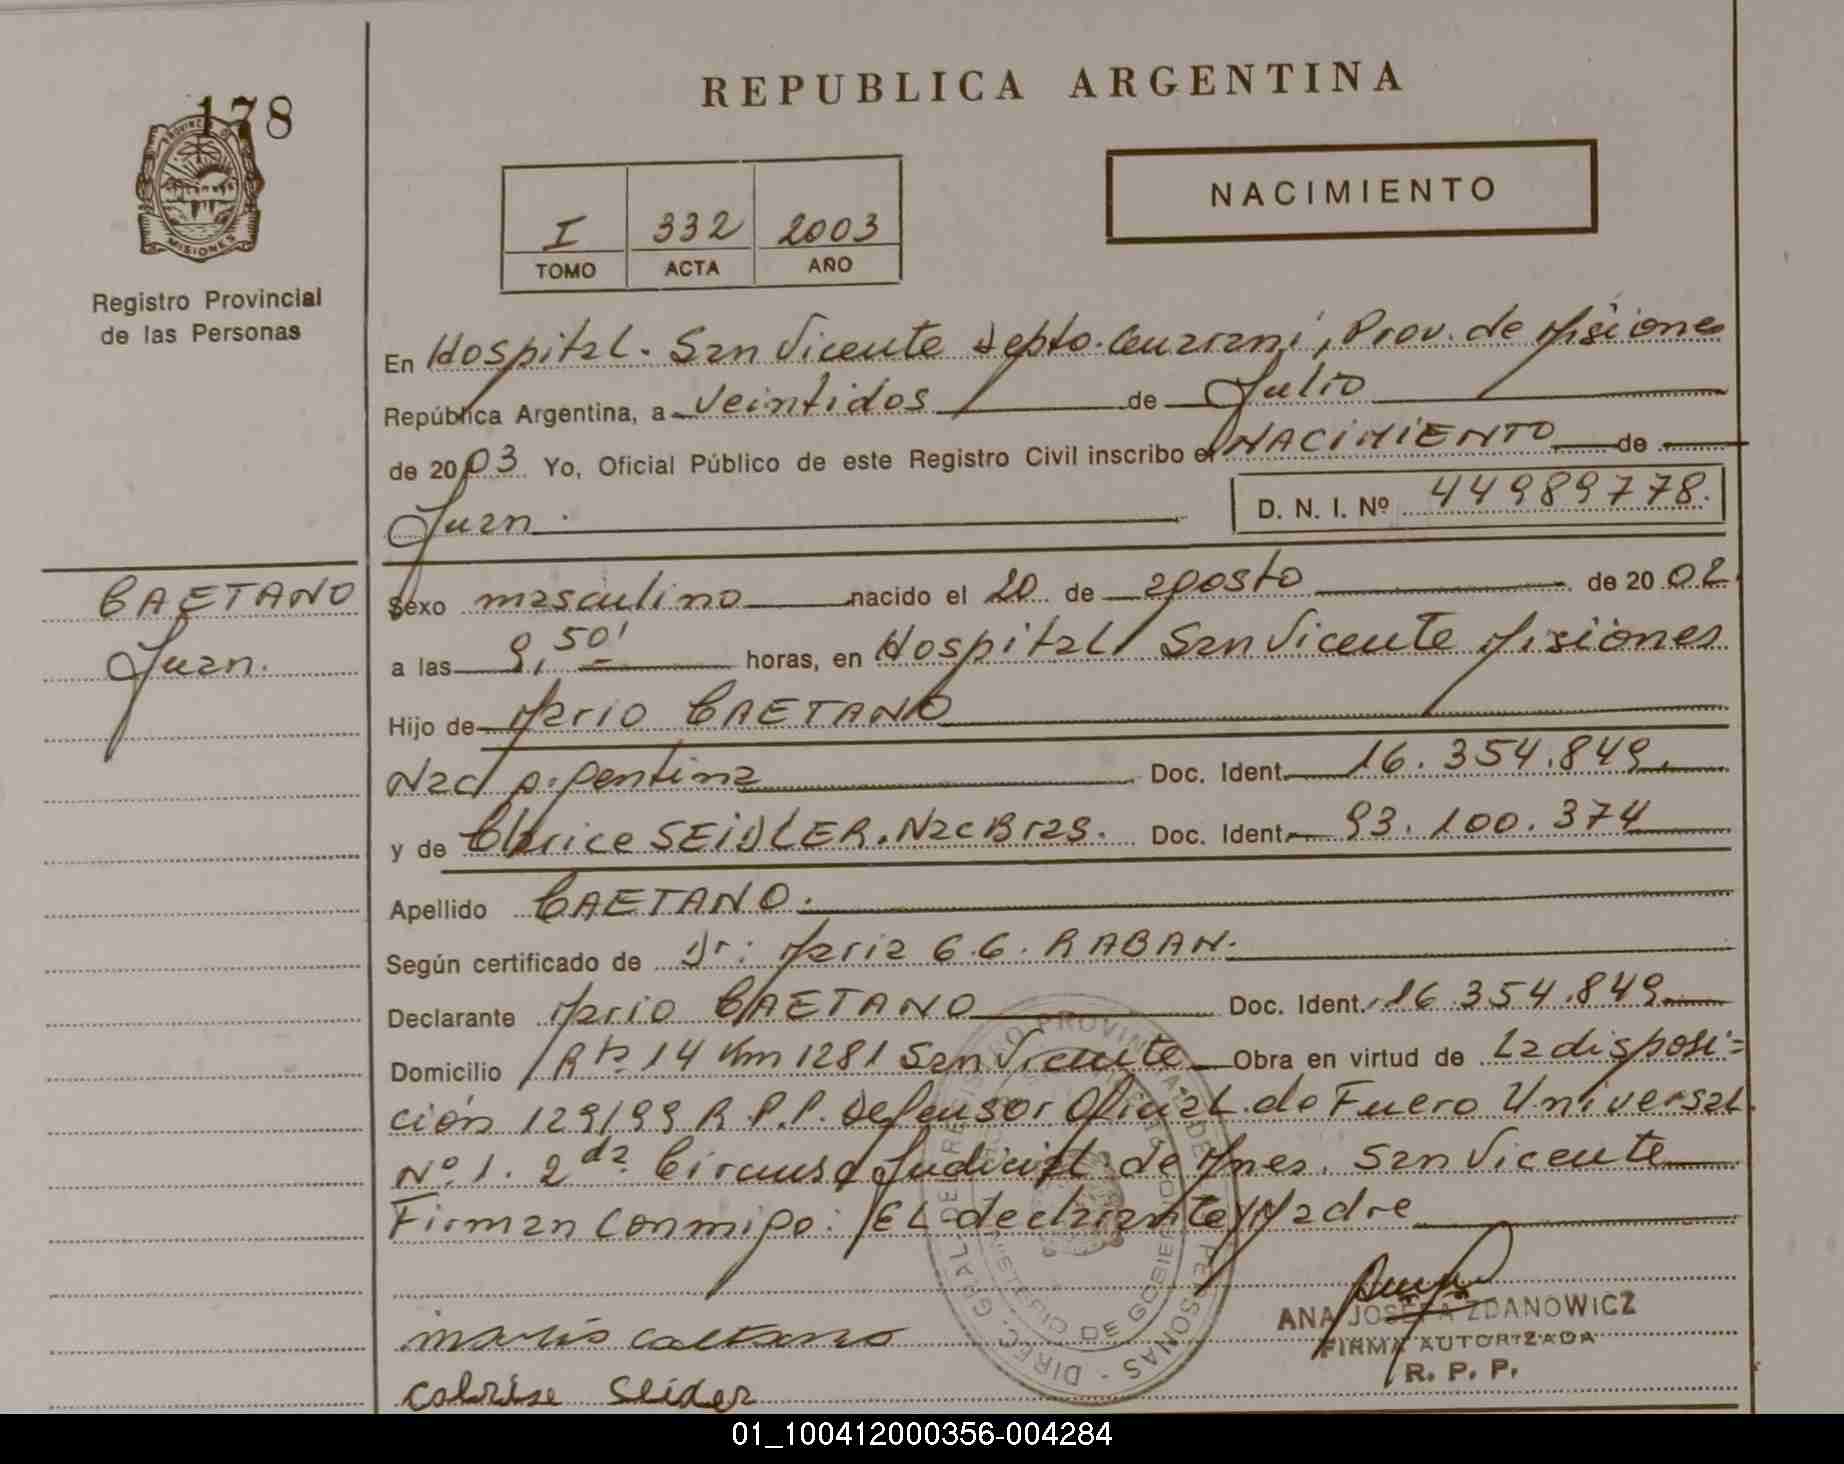 178
PROVINCIA DE
MISIONES
Registro Provincial
de las Personas
REPUBLICA ARGENTINA
NACIMIENTO
I 332 2003
TOMO ACTA AÑO
En Hospital. San Vicente Depto. Guarani, Prov. de Misiones
República Argentina, a Veintidos de Julio
de 2003 Yo, Oficial Público de este Registro Civil inscribo el NACIMIENTO de
Juan. D. N. I. Nº 44989778.
CAETANO
Juan.
Sexo masculino nacido el 20 de agosto de 2002.
a las 9,50' horas, en Hospital San Vicente Misiones
Hijo de Mario CAETANO
Nac Argentina Doc. Ident. 16.354.849.
y de Clarice SEIDLER. Nac Bras. Doc. Ident. 93.100.374
Apellido CAETANO.
Según certificado de Dr: Maria G.G. RABAN.
Declarante Mario CAETANO Doc. Ident. 16.354.849
Domicilio Rta 14 Km 1281 San Vicente Obra en virtud de La disposi=
ción 129/99 R.P.P. Defensor Oficial de Fuero Universal
Nº 1. 2da Circuns Judicial de Mnes. San Vicente
Firman Conmigo: EL declarante y Madre
mario caetano
Colrise Seider
DIREC. GRAL. DE REGISTRO PROVINCIAL DE PERSONAS
ANA JOSEFA ZDANOWICZ
FIRMA AUTORIZADA
R. P. P.
01_100412000356-004284